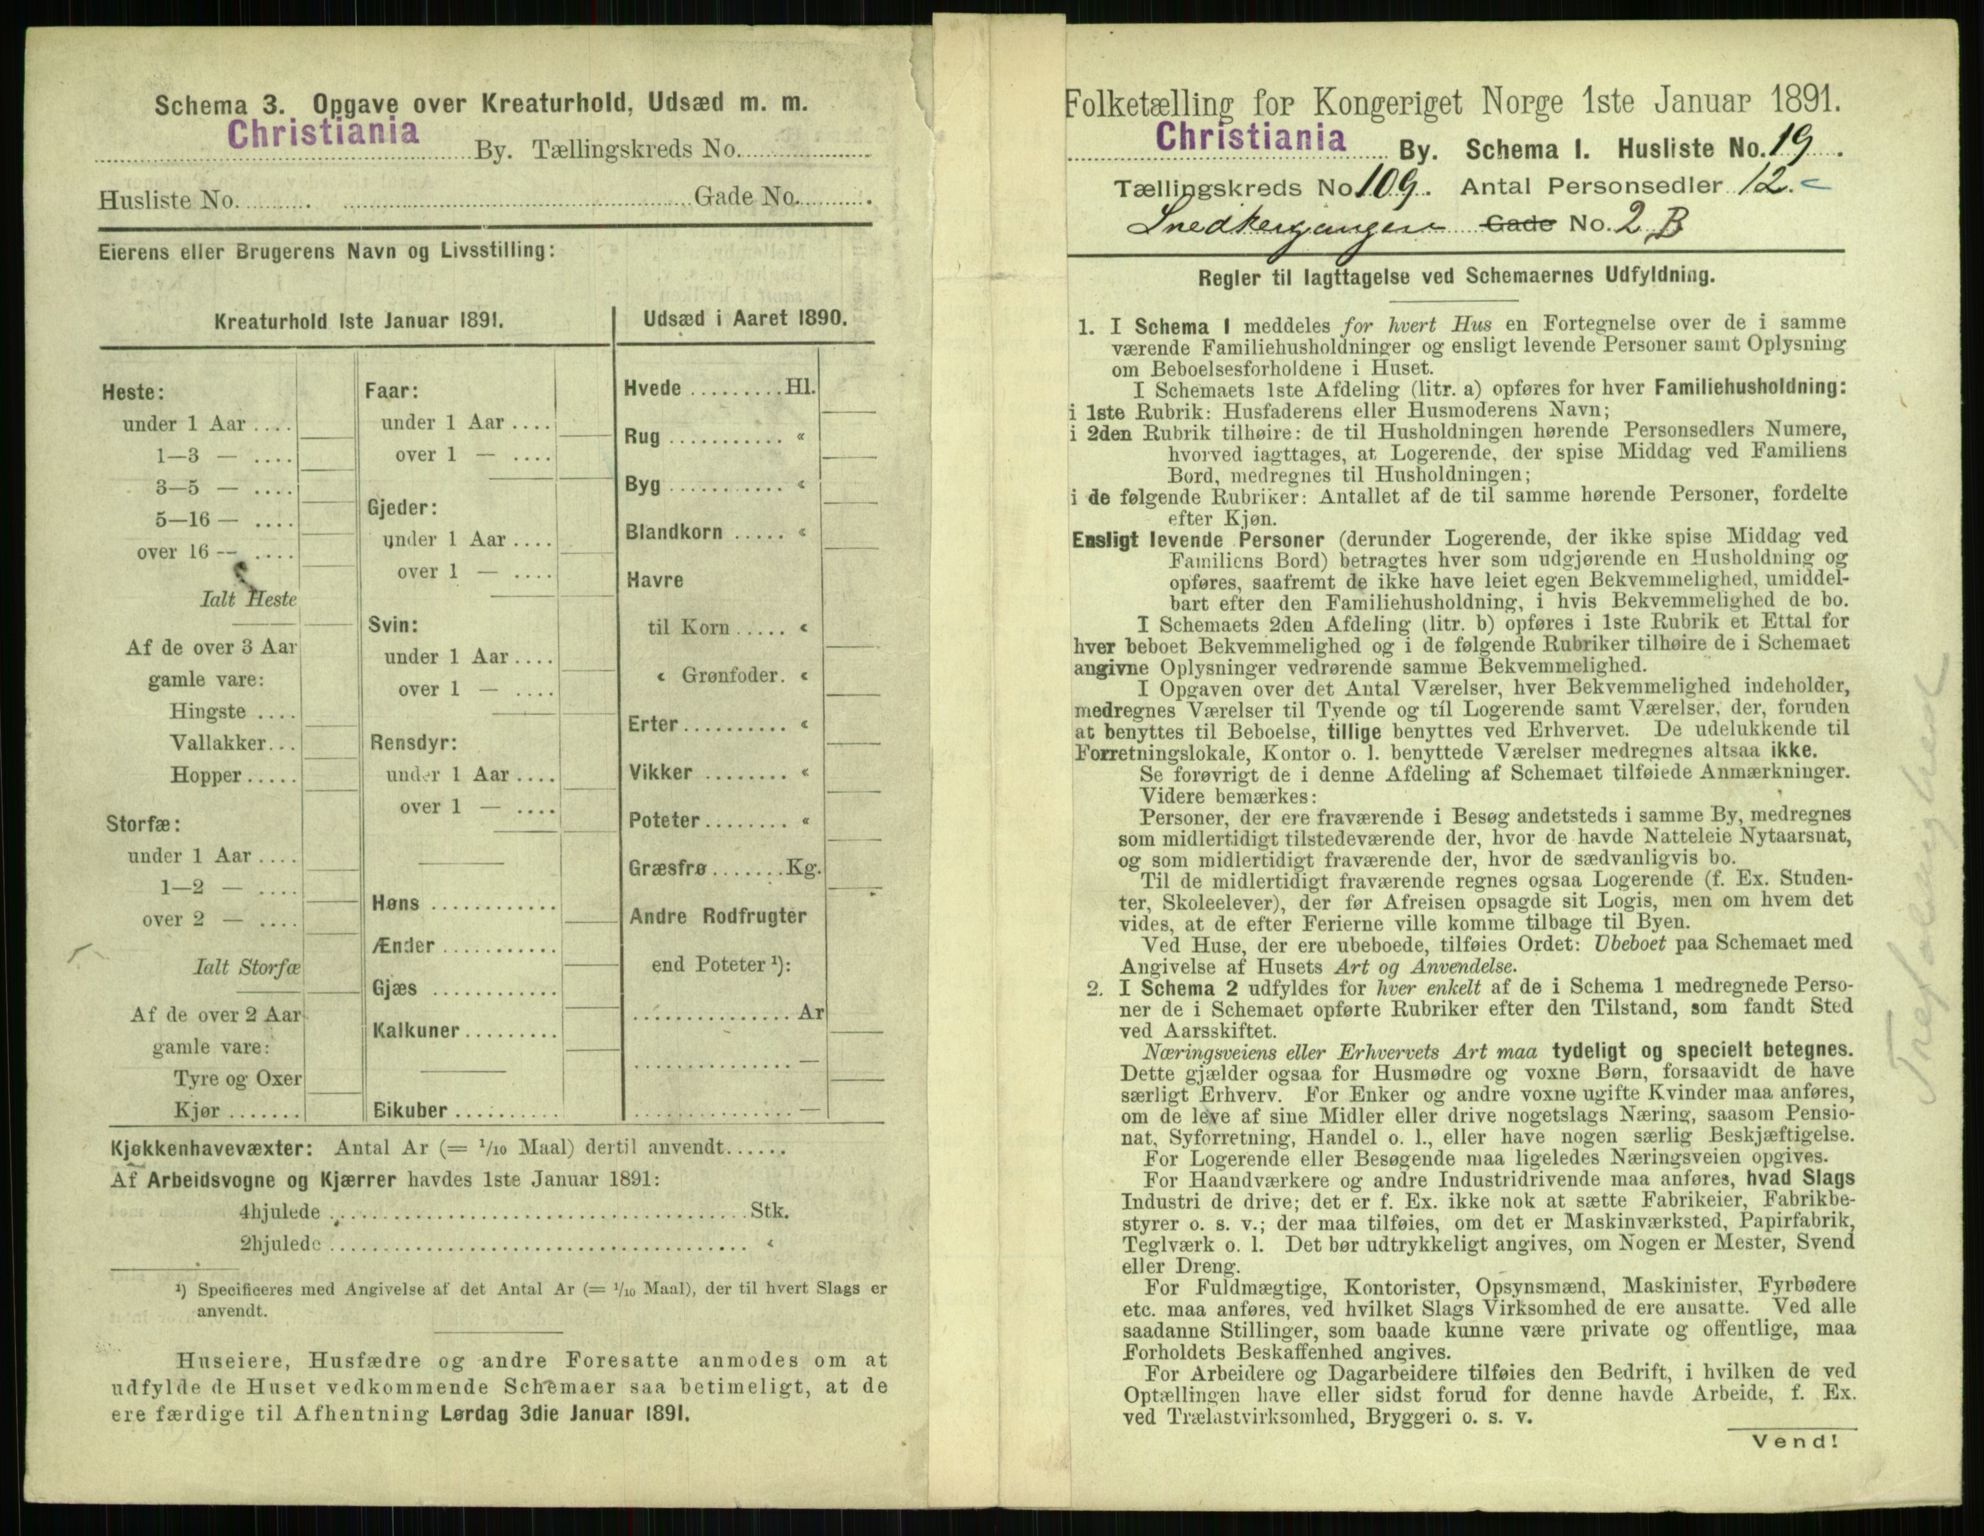 Schema 3. Opgave over Kreaturhold, Udsæd m. m.
Christiania By. Tællingskreds No.
Husliste No. Gade No.
Eierens eller Brugerens Navn og Livsstilling:
Kreaturhold 1ste Januar 1891.
Heste:
under 1 Aar ....
1—3 — ....
3—5 — ....
5—16 — ....
over 16 — ....
Ialt Heste
Af de over 3 Aar
gamle vare:
Hingste ....
Vallakker...
Hopper.....
Storfæ:
under 1 Aar ....
1—2 — ....
over 2 — ....
Ialt Storfæ
Af de over 2 Aar
gamle vare:
Tyre og Oxer
Kjør .......
Faar:
under 1 Aar ....
over 1 — ....
Gjeder:
under 1 Aar ....
over 1 — ....
Svin:
under 1 Aar ....
over 1 — ....
Rensdyr:
under 1 Aar ....
over 1 — ....
Høns ............
Ænder ...........
Gjæs ............
Kalkuner.........
Bikuber ..........
Udsæd i Aaret 1890.
Hvede .........Hl.
Rug ........... «
Byg ........... «
Blandkorn ..... «
Havre
til Korn ..... «
« Grønfoder. «
Erter .......... «
Vikker ........ «
Poteter........ «
Græsfrø .......Kg.
Andre Rodfrugter
end Poteter ¹):
............... Ar
............... —
............... —
Kjøkkenhavevæxter: Antal Ar (= 1/10 Maal) dertil anvendt......
Af Arbeidsvogne og Kjærrer havdes 1ste Januar 1891:
4hjulede ........................................ Stk.
2hjulede ........................................ «
¹) Specificeres med Angivelse af det Antal Ar (= 1/10 Maal), der til hvert Slags er
anvendt.
Huseiere, Husfædre og andre Foresatte anmodes om at
udfylde de Huset vedkommende Schemaer saa betimeligt, at de
ere færdige til Afhentning Lørdag 3die Januar 1891.
Folketælling for Kongeriget Norge 1ste Januar 1891.
Christiania By. Schema 1. Husliste No. 19.
Tællingskreds No 109. Antal Personsedler 12.
Snedkergangen Gade No. 2 B
Regler til Iagttagelse ved Schemaernes Udfyldning.
1. I Schema 1 meddeles for hvert Hus en Fortegnelse over de i samme
værende Familiehusholdninger og ensligt levende Personer samt Oplysning
om Beboelsesforholdene i Huset.
I Schemaets 1ste Afdeling (litr. a) opføres for hver Familiehusholdning:
i 1ste Rubrik: Husfaderens eller Husmoderens Navn;
i 2den Rubrik tilhøire: de til Husholdningen hørende Personsedlers Numere,
hvorved iagttages, at Logerende, der spise Middag ved Familiens
Bord, medregnes til Husholdningen;
i de følgende Rubriker: Antallet af de til samme hørende Personer, fordelte
efter Kjøn.
Ensligt levende Personer (derunder Logerende, der ikke spise Middag ved
Familiens Bord) betragtes hver som udgjørende en Husholdning og
opføres, saafremt de ikke have leiet egen Bekvemmelighed, umiddel-
bart efter den Familiehusholdning, i hvis Bekvemmelighed de bo.
I Schemaets 2den Afdeling (litr. b) opføres i 1ste Rubrik et Ettal for
hver beboet Bekvemmelighed og i de følgende Rubriker tilhøire de i Schemaet
angivne Oplysninger vedrørende samme Bekvemmelighed.
I Opgaven over det Antal Værelser, hver Bekvemmelighed indeholder,
medregnes Værelser til Tyende og til Logerende samt Værelser, der, foruden
at benyttes til Beboelse, tillige benyttes ved Erhvervet. De udelukkende til
Forretningslokale, Kontor o. l. benyttede Værelser medregnes altsaa ikke.
Se forøvrigt de i denne Afdeling af Schemaet tilføiede Anmærkninger.
Videre bemærkes:
Personer, der ere fraværende i Besøg andetsteds i samme By, medregnes
som midlertidigt tilstedeværende der, hvor de havde Natteleie Nytaarsnat,
og som midlertidigt fraværende der, hvor de sædvanligvis bo.
Til de midlertidigt fraværende regnes ogsaa Logerende (f. Ex. Studen-
ter, Skoleelever), der før Afreisen opsagde sit Logis, men om hvem det
vides, at de efter Ferierne ville komme tilbage til Byen.
Ved Huse, der ere ubeboede, tilføies Ordet: Ubeboet paa Schemaet med
Angivelse af Husets Art og Anvendelse.
2. I Schema 2 udfyldes for hver enkelt af de i Schema 1 medregnede Perso-
ner de i Schemaet opførte Rubriker efter den Tilstand, som fandt Sted
ved Aarsskiftet.
Næringsveiens eller Erhvervets Art maa tydeligt og specielt betegnes.
Dette gjælder ogsaa for Husmødre og voxne Børn, forsaavidt de have
særligt Erhverv. For Enker og andre voxne ugifte Kvinder maa anføres,
om de leve af sine Midler eller drive nogetslags Næring, saasom Pensio-
nat, Syforretning, Handel o. l., eller have nogen særlig Beskjæftigelse.
For Logerende eller Besøgende maa ligeledes Næringsveien opgives.
For Haandværkere og andre Industridrivende maa anføres, hvad Slags
Industri de drive; det er f. Ex. ikke nok at sætte Fabrikeier, Fabrikbe-
styrer o. s. v.; der maa tilføies, om det er Maskinværksted, Papirfabrik,
Teglværk o. l. Det bør udtrykkeligt angives, om Nogen er Mester, Svend
eller Dreng.
For Fuldmægtige, Kontorister, Opsynsmænd, Maskinister, Fyrbødere
etc. maa anføres, ved hvilket Slags Virksomhed de ere ansatte. Ved alle
saadanne Stillinger, som baade kunne være private og offentlige, maa
Forholdets Beskaffenhed angives.
For Arbeidere og Dagarbeidere tilføies den Bedrift, i hvilken de ved
Optællingen have eller sidst forud for denne havde Arbeide, f. Ex.
ved Trælastvirksomhed, Bryggeri o. s. v.
Vend!